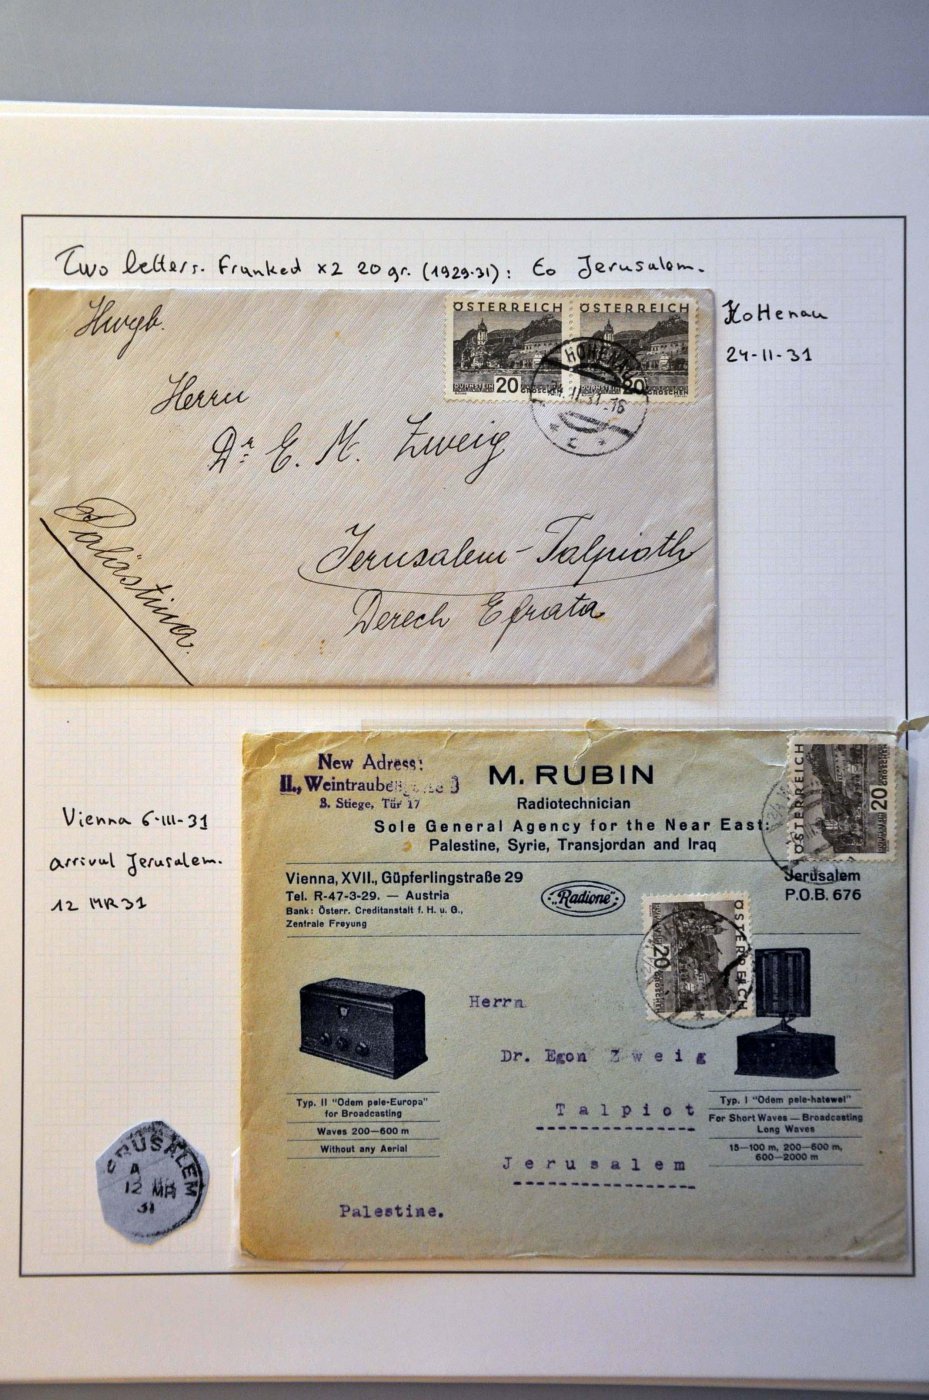 Two letters. Franked x2 20 gr. (1929-31): to Jerusalem.
Hohenau
24-II-31
ÖSTERREICH
20
GROSCHEN
ÖSTERREICH
20
GROSCHEN
HOHENAU
II 31-16
Hwgb.
Herrn
Dr. E. M. Zweig
Jerusalem-Talpioth
Derech Efrata
Palästina.
Vienna 6-III-31
arrival Jerusalem.
12 MR 31
New Adress:
II., Weintraubengasse
3. Stiege, Tür 17
M. RUBIN
Radiotechnician
Sole General Agency for the Near East:
Palestine, Syrie, Transjordan and Iraq
Vienna, XVII., Güpferlingstraße 29
Tel. R-47-3-29. — Austria
Bank: Österr. Creditanstalt f. H. u. G.,
Zentrale Freyung
Radione
Jerusalem
P.O.B. 676
ÖSTERREICH
20
GROSCHEN
ÖSTERREICH
20
GROSCHEN
Herrn
Dr. Egon Zweig
Talpiot
Jerusalem
Palestine.
Typ. II "Odem pele-Europa"
for Broadcasting
Waves 200—600 m
Without any Aerial
Typ. I "Odem pele-hatewel"
For Short Waves — Broadcasting
Long Waves
15—100 m, 200—600 m,
600—2000 m
JERUSALEM
A
12 MR
31